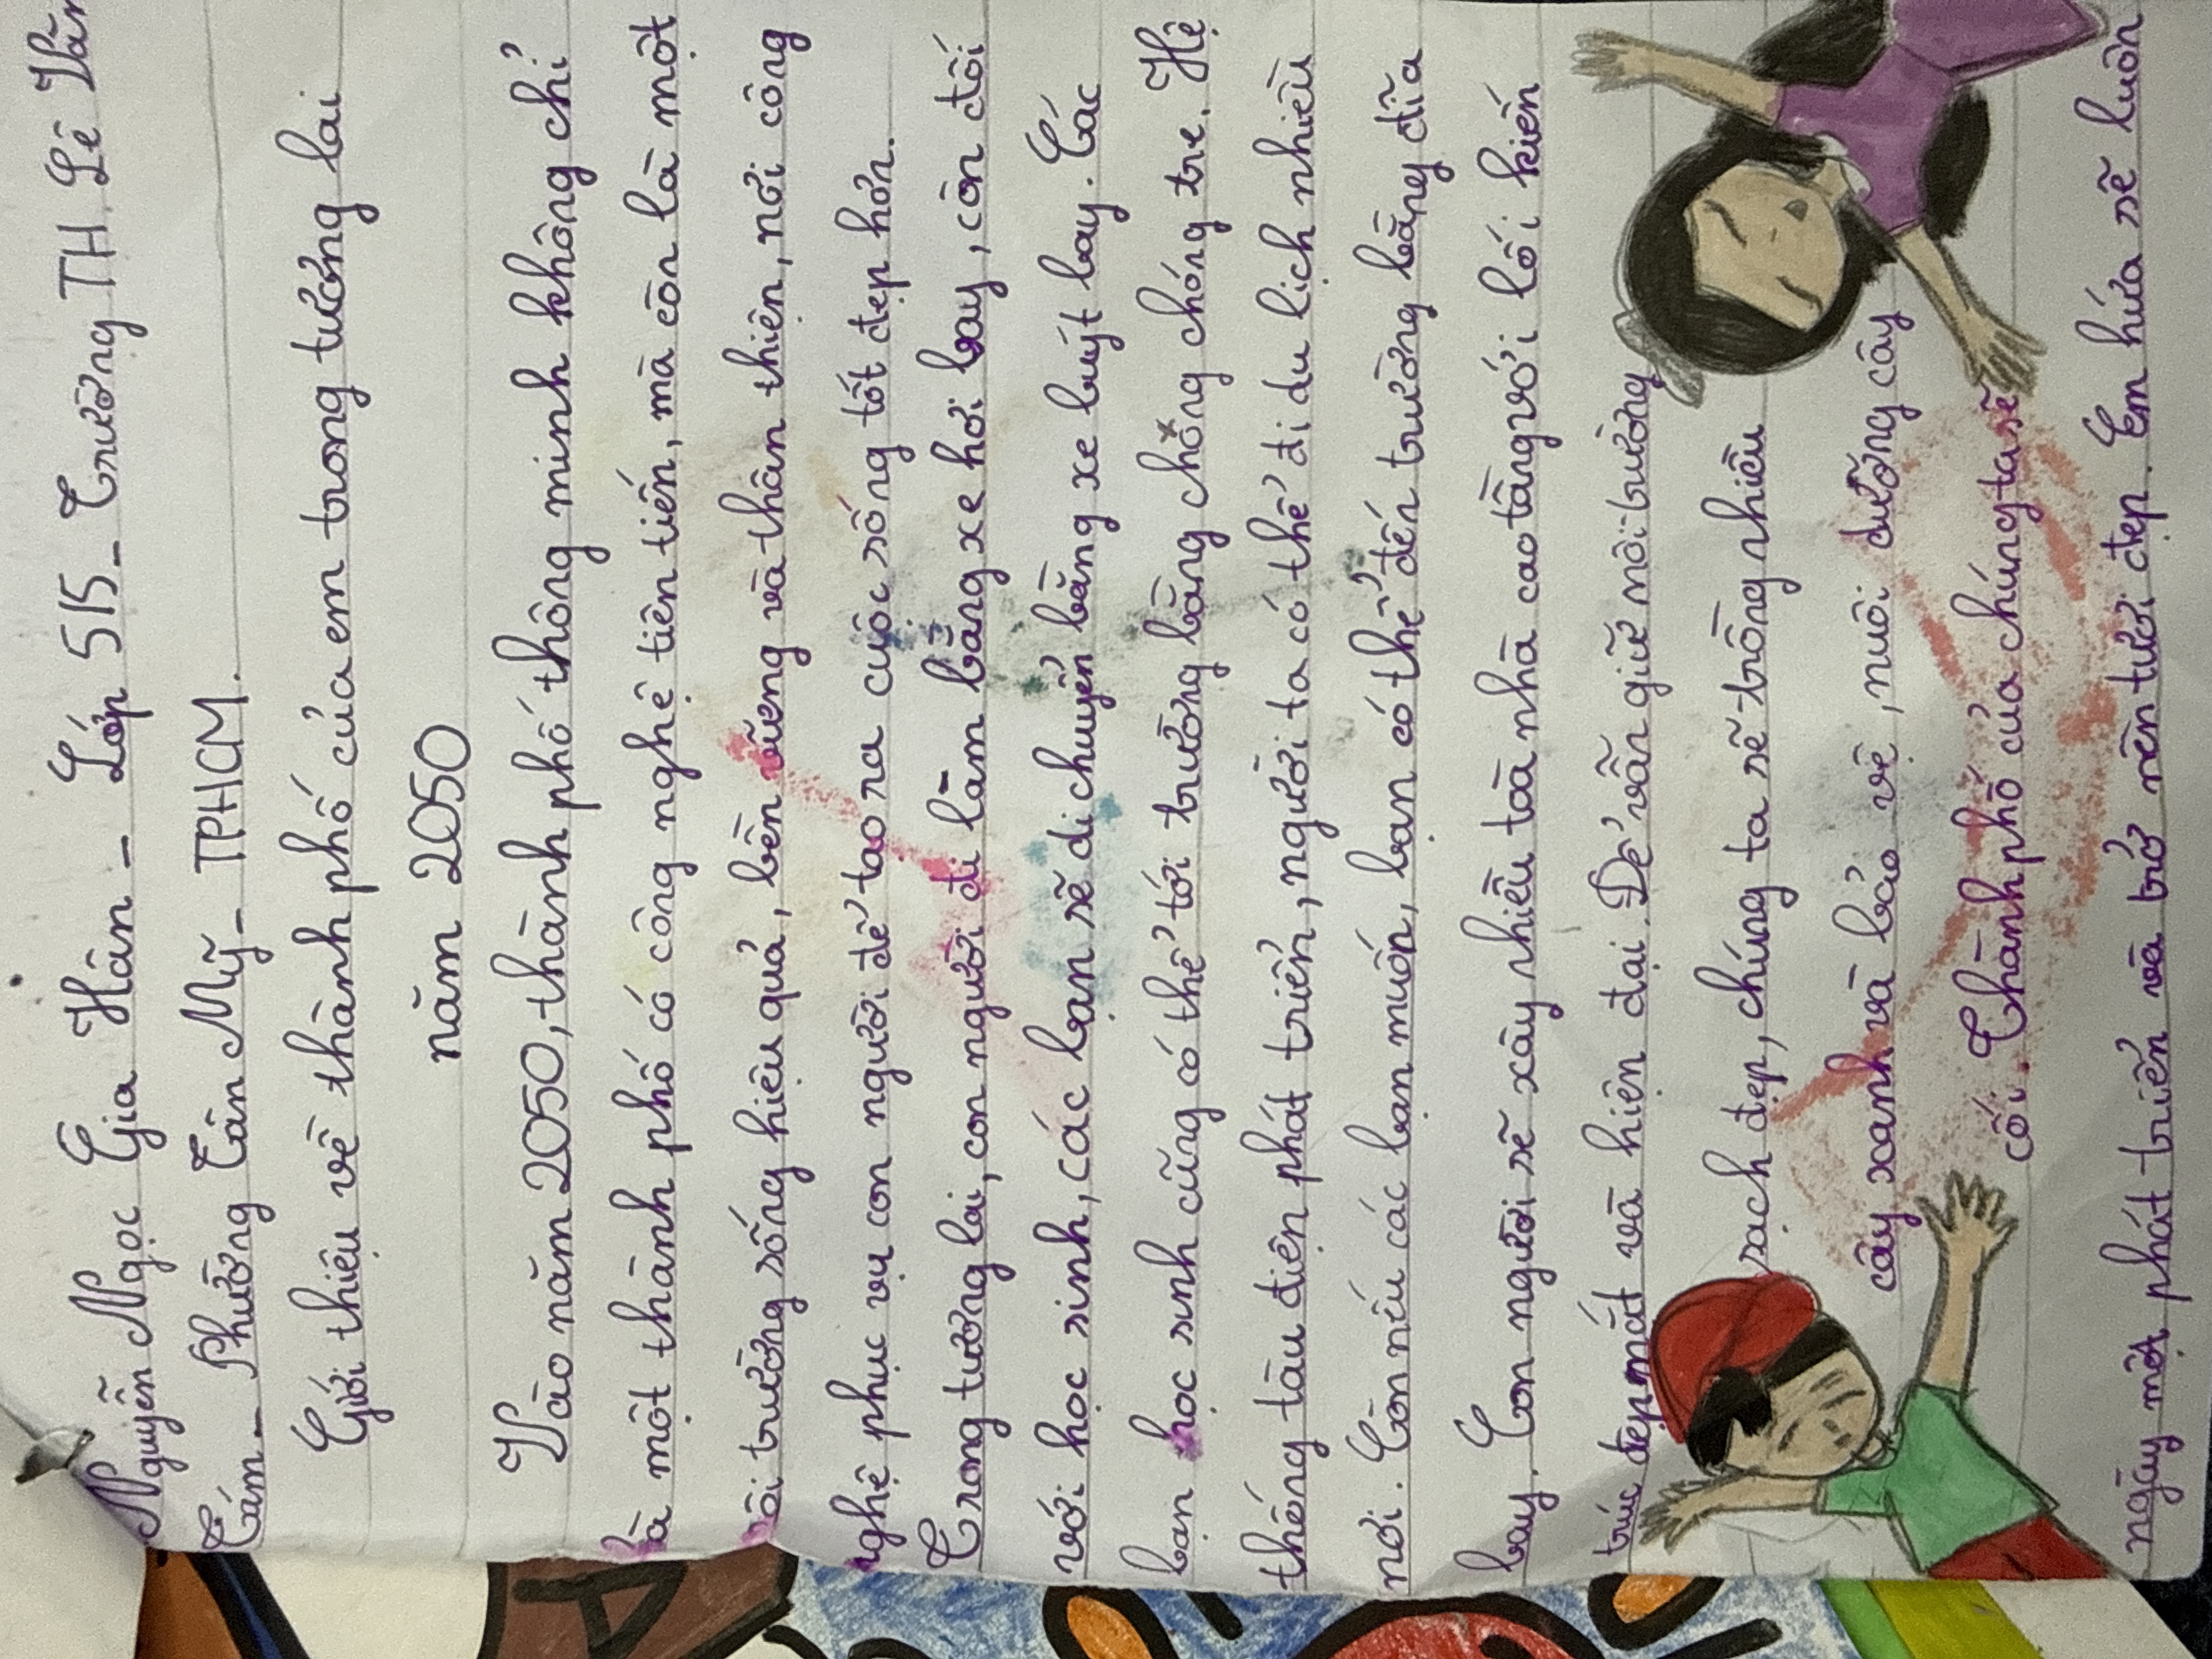 Nguyễn Ngọc Gia Hân - Lớp 5/5 - Trường TH. Lê Văn
Tám - Phường Tân Mỹ - TPHCM.
Giới thiệu về thành phố của em trong tương lai
năm 2050
Vào năm 2050, thành phố thông minh không chỉ
là một thành phố có công nghệ tiên tiến, mà còn là một
môi trường sống hiệu quả, bền vững và thân thiện, nơi công
nghệ phục vụ con người để tạo ra cuộc sống tốt đẹp hơn.
Trong tương lai, con người đi làm bằng xe hơi bay, còn đối
với học sinh, các bạn sẽ di chuyển bằng xe buýt bay. Các
bạn học sinh cũng có thể tới trường bằng chong chóng tre. Hệ
thống tàu điện phát triển, người ta có thể đi du lịch nhiều
nơi. Còn nếu các bạn muốn, bạn có thể đến trường bằng đĩa
bay. Con người sẽ xây nhiều toà nhà cao tầng với lối kiến
trúc đẹp mắt và hiện đại. Để vẫn giữ môi trường
sạch đẹp, chúng ta sẽ trồng nhiều
cây xanh và bảo vệ, nuôi dưỡng cây
cối. Thành phố của chúng ta sẽ
ngày một phát triển và trở nên tươi đẹp. Em hứa sẽ luôn